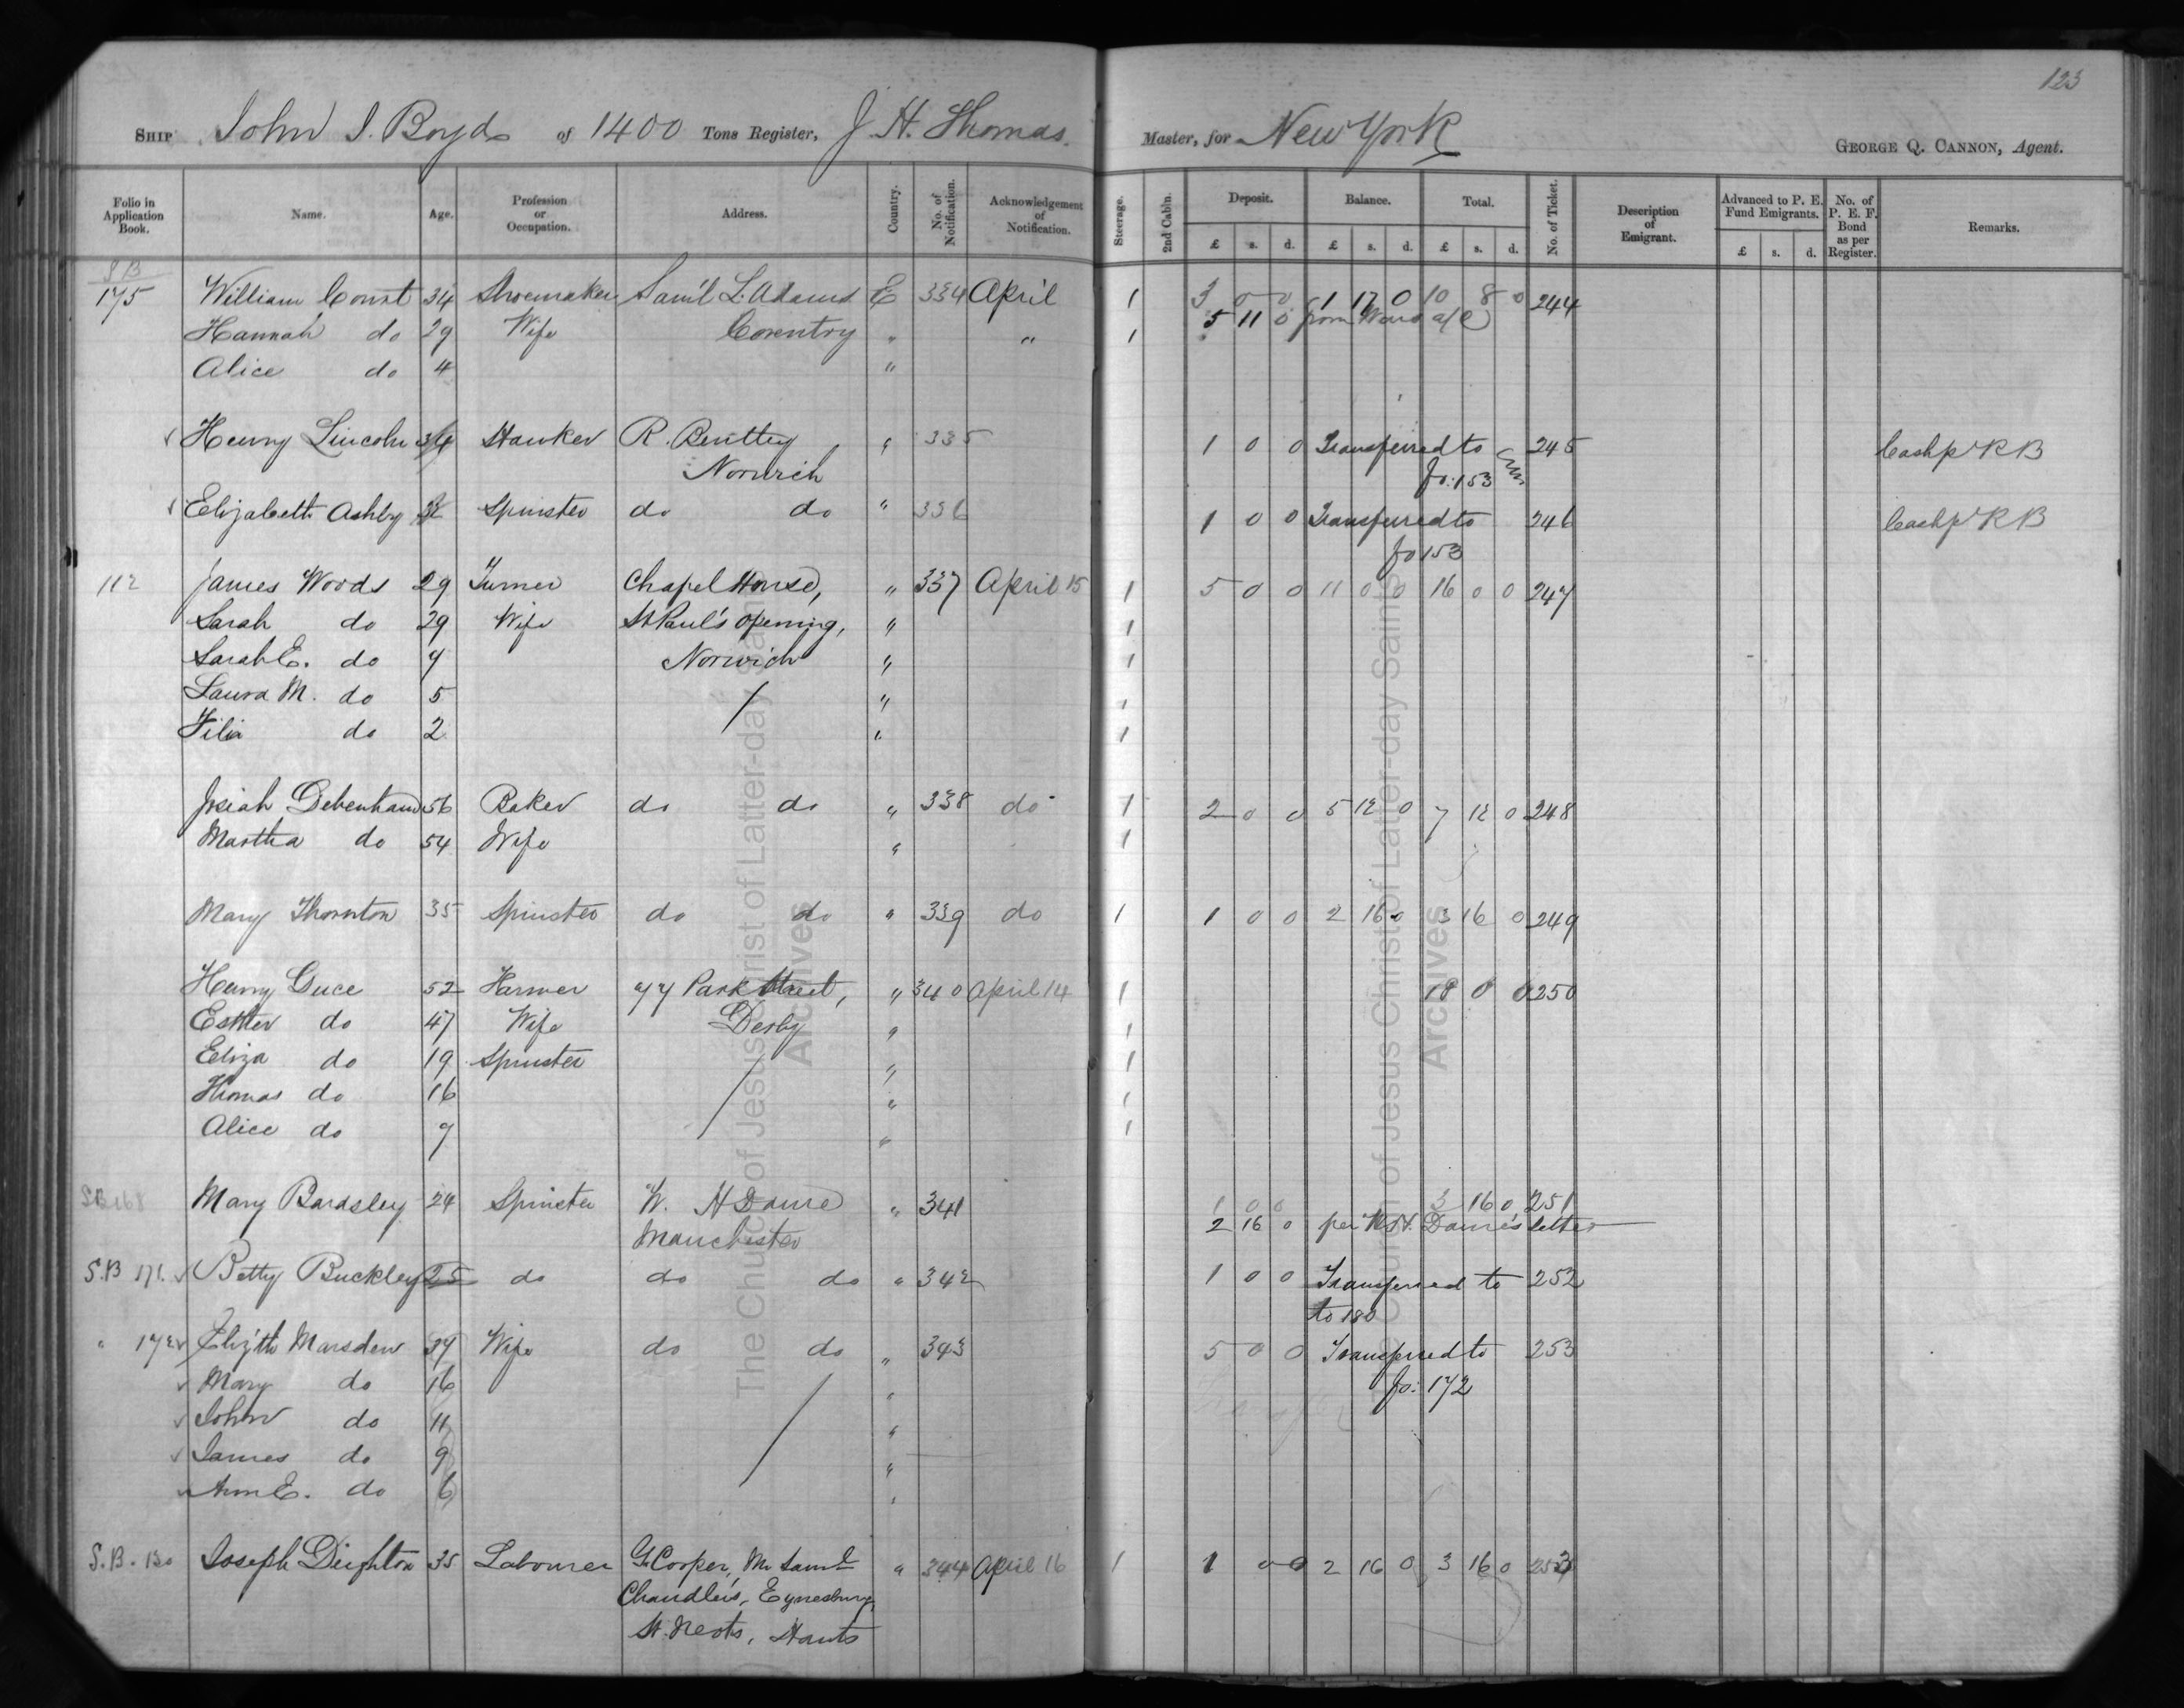 123
SHIP John J. Boyd of 1400 Tons Register, J. H. Thomas. Master, for New York GEORGE Q. CANNON, Agent.
Folio in Application Book. Name. Age. Profession or Occupation. Address. Country. No. of Notification. Acknowledgement of Notification. Steerage. 2nd Cabin. Deposit. Balance. Total. No. of Ticket. Description of Emigrant. Advanced to P. E. Fund Emigrants. No. of P. E. F. Bond as per Register. Remarks.
£ s. d. £ s. d. £ s. d. £ s. d.
S B
175 William Const 34 Shoemaker Sam'l L. Adams E 334 April 1 3 0 0 1 17 0 10 8 0 244
Hannah do 29 Wife Coventry " " 1 5 11 0 from Ward a/c
Alice do 4 "
Henry Lincoln Hawker R. Bentley " 335 1 0 0 Transferred to 245 Cash p R B
Norwich fo: 153
Elizabeth Ashby Spinster do do " 336 1 0 0 Transferred to 246 Cash p R B
fo 153
112 James Woods 29 Turner Chapel House, " 337 April 15 1 5 0 0 11 0 0 16 0 0 247
Sarah do 29 Wife St Paul's opening, " 1
Sarah E. do 7 Norwich " 1
Laura M. do 5 / " 1
do 2 " 1
Josiah Debenham 56 Baker do do " 338 do 1 2 0 0 5 12 0 7 12 0 248
Martha do 54 Wife " 1
Mary Thornton 35 Spinster do do " 339 do 1 1 0 0 2 16 0 3 16 0 249
Henry Guce 52 Farmer 77 Park Street, " 340 April 14 1 18 0 0 250
Esther do 47 Wife Derby " 1
Eliza do 19 Spinster / " 1
Thomas do 16 " 1
Alice do 9 " 1
SB 168 Mary Bardsley 24 Spinster W. H Dame " 341 1 0 0 3 16 0 251
Manchester 2 16 0 per W. H. Dame's letter
S.B 171. Betty Buckley 25 do do do " 342 1 0 0 Transferred to 252
to 180
" 172 Eliz'th Marsden 39 Wife do do " 343 5 0 0 Transferred to 253
Mary do 16 / " fo: 172
John do 11 "
James do 9 "
Ann E. do 6 "
S.B. 130 Joseph Deighton 35 Labourer G. Cooper, Mr Saml " 344 April 16 1 1 0 0 2 16 0 3 16 0 253
Chandler's, Eynesbury,
St. Neots, Hants
The Church of Jesus Christ of Latter-day Saints
Archives
The Church of Jesus Christ of Latter-day Saints
Archives